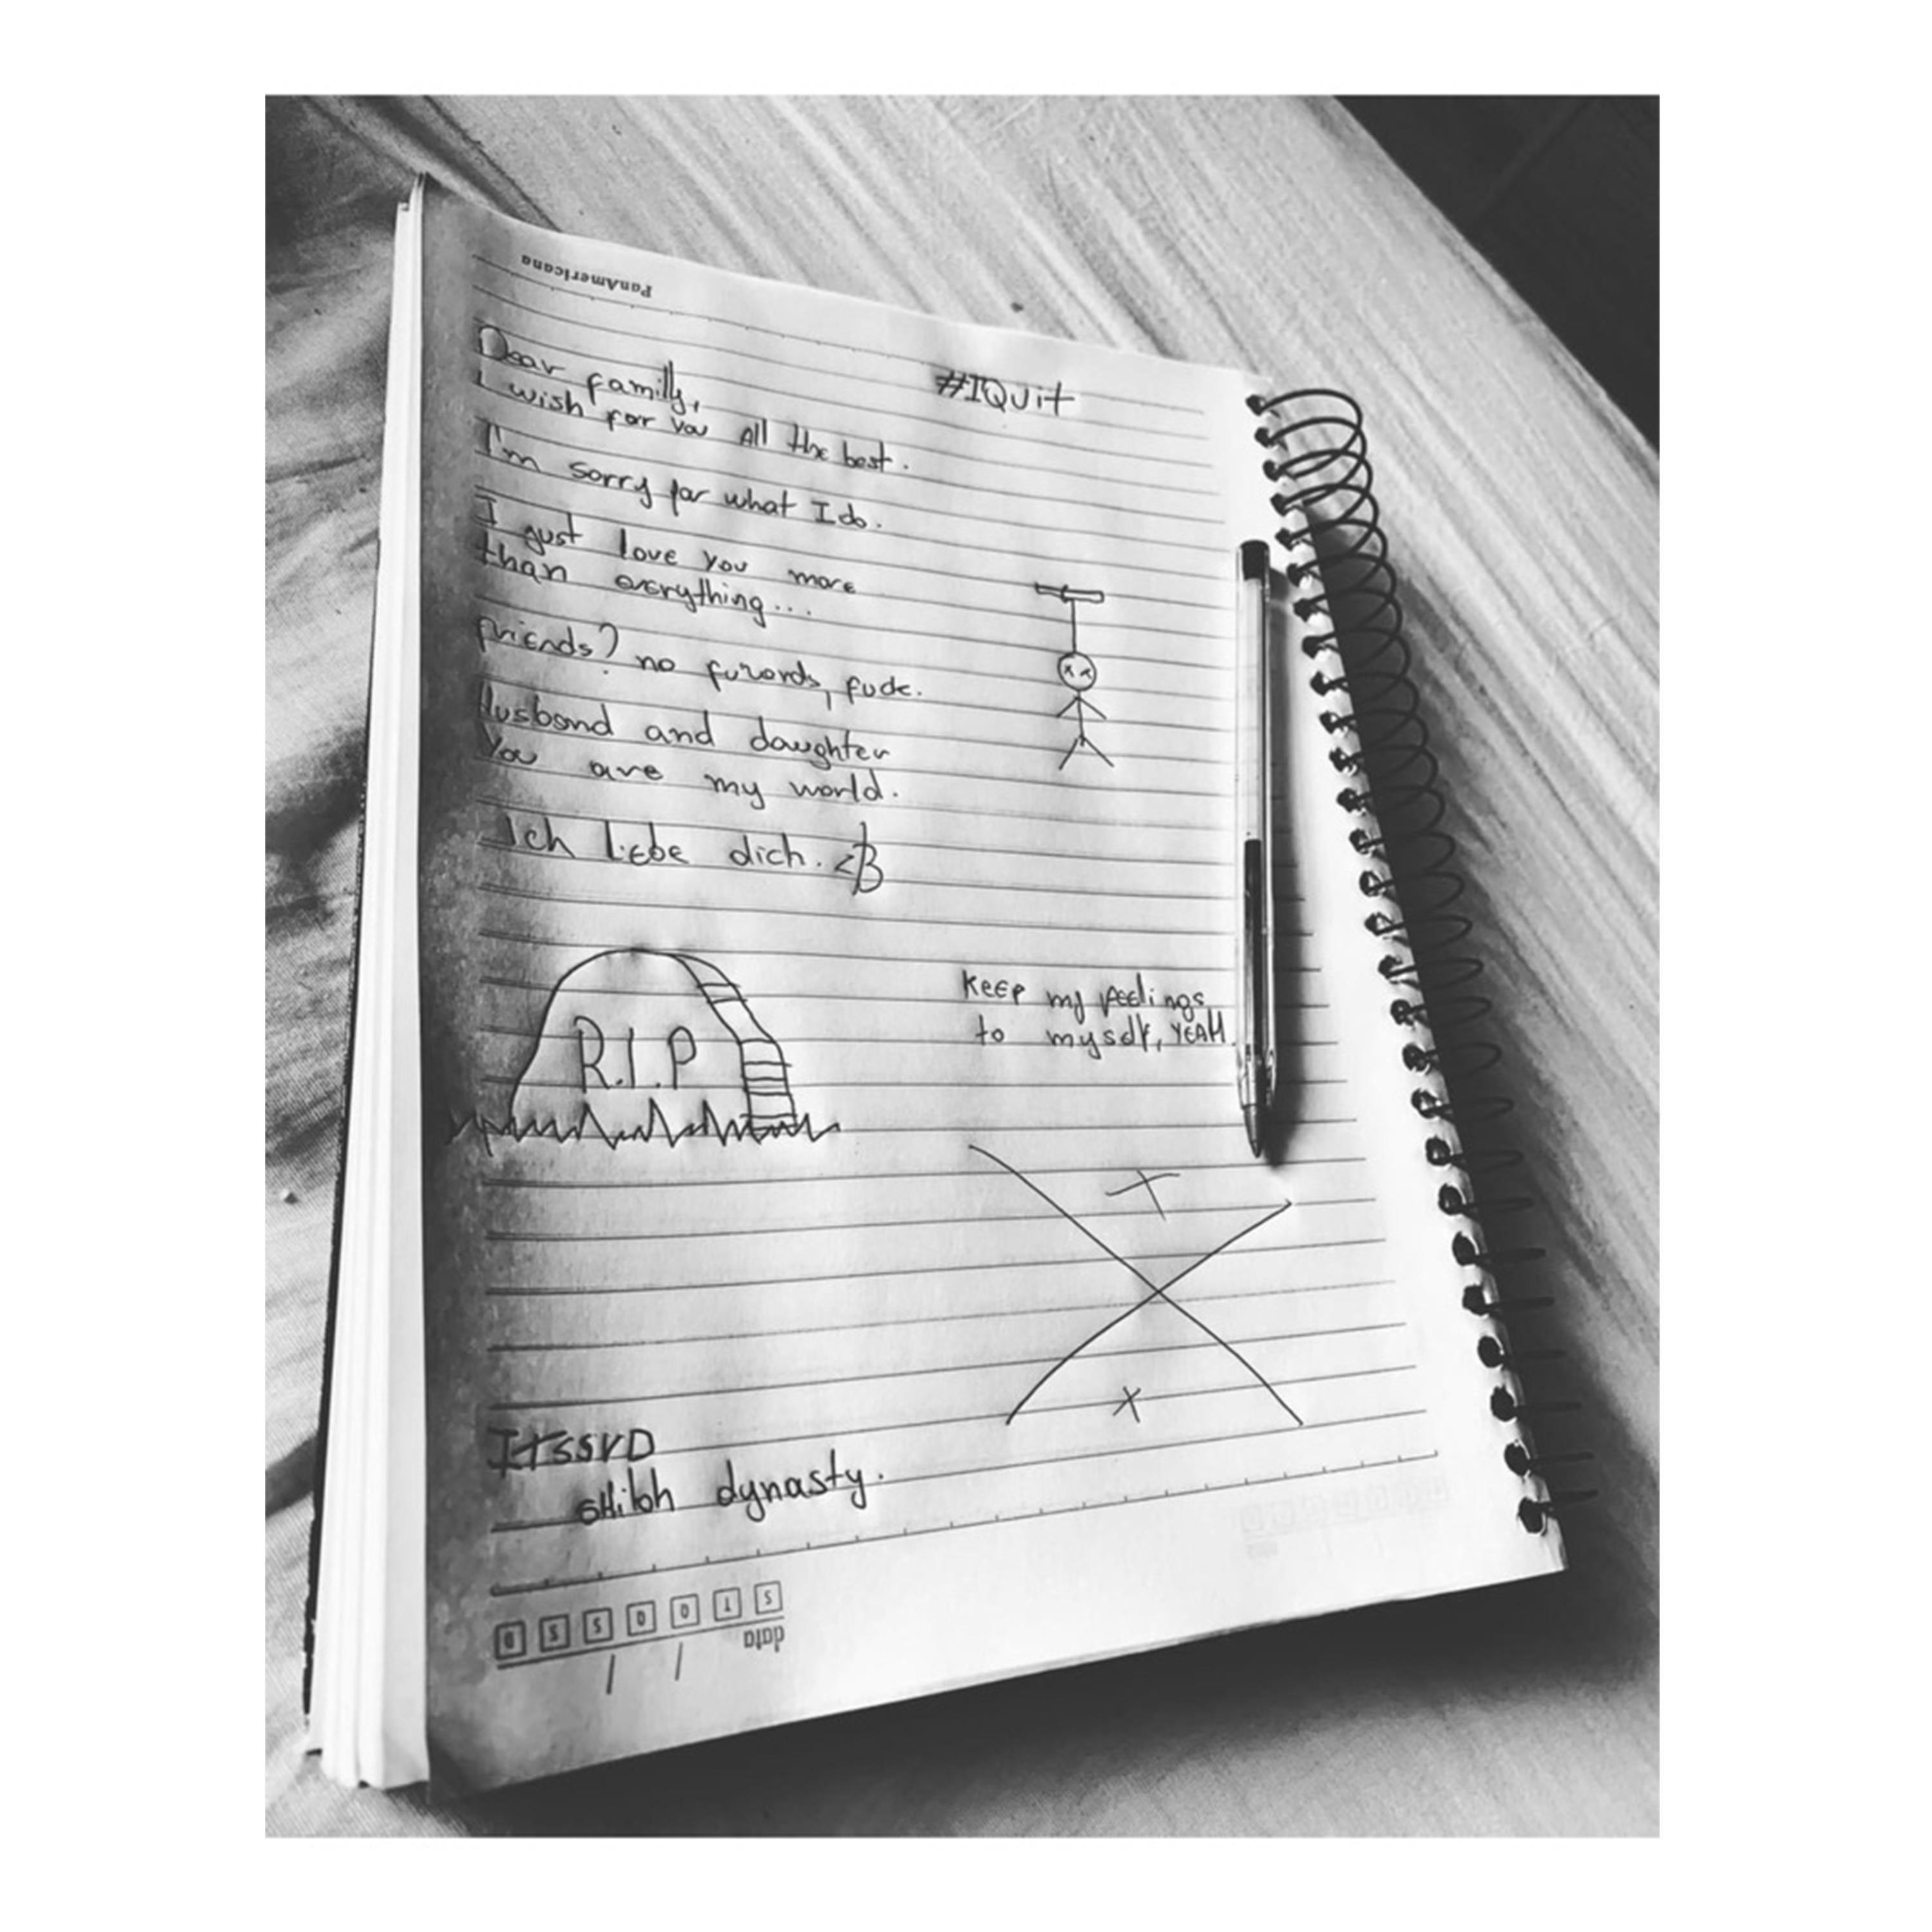 PanAmericana
#IQuit
Dear family,
I wish for you All the best.
I'm sorry for what I do.
I just love you more
than everything...
friends? no
Husband and daughter
You are my world.
Ich liebe dich. <3
R.I.P
Keep my feelings
to myself, YEAH.
ItSSVD
sHiloh dynasty.
S T Q Q S S D
data / /